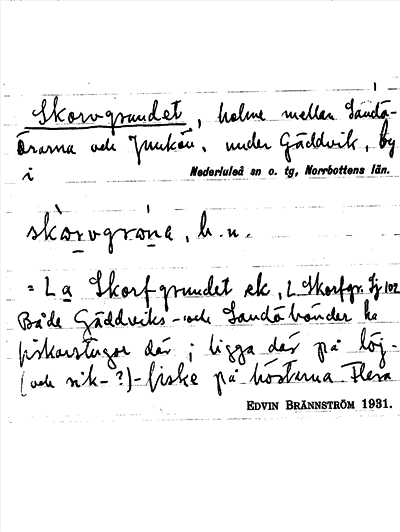 Skorvgrundet, holme mellan Sandö-
örarna och Junkön, under Gäddvik, by
i Nederluleå sn o. tg, Norrbottens län.
skòrvgróna, b. n.
= La Skorfgrundet ek, L. Skorfgr. Sj 102
Både Gäddviks- och Sandöbönder ha
fiskarstugor där; ligga där på löj-
(och sik-?)-fiske på höstarna. Flera
EDVIN BRÄNNSTRÖM 1931.